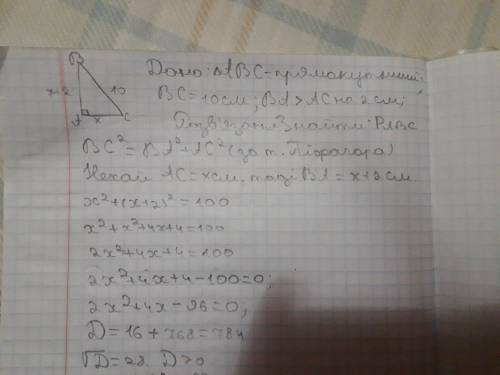 B
Дано: ΔABC - прямокутний;
x+2 10
BC = 10см; BA > AC на 2 см;
A x C
Знайти: PABC
BC² = BA² + AC² (за т. Піфагора)
Нехай AC = x см, тоді BA = x+2 см
x² + (x+2)² = 100
x² + x² + 4x + 4 = 100
2x² + 4x + 4 = 100
2x² + 4x + 4 - 100 = 0;
2x² + 4x - 96 = 0;
D = 16 + 768 = 784
√D = 28. D > 0